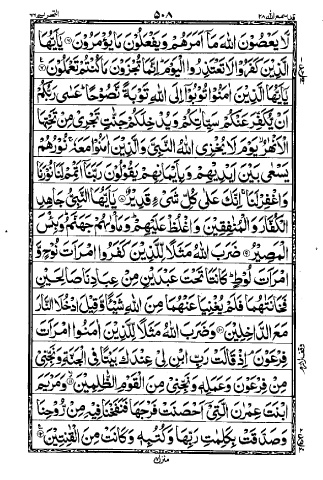 قد سمع الله ٢٨ ٥٠٨ التحريم ٦٦
لَّا يَعْصُونَ اللّٰهَ مَآ اَمَرَهُمْ وَيَفْعَلُوْنَ مَا يُؤْمَرُوْنَ ۝ يٰٓاَيُّهَا
الَّذِيْنَ كَفَرُوْا لَا تَعْتَذِرُوا الْيَوْمَ ؕ اِنَّمَا تُجْزَوْنَ مَا كُنْتُمْ تَعْمَلُوْنَ ۝
يٰٓاَيُّهَا الَّذِيْنَ اٰمَنُوْا تُوْبُوْٓا اِلَى اللّٰهِ تَوْبَةً نَّصُوْحًا ؕ عَسٰى رَبُّكُمْ
اَنْ يُّكَفِّرَ عَنْكُمْ سَيِّاٰتِكُمْ وَيُدْخِلَكُمْ جَنّٰتٍ تَجْرِيْ مِنْ تَحْتِهَا
الْاَنْهٰرُ ۙ يَوْمَ لَا يُخْزِي اللّٰهُ النَّبِيَّ وَالَّذِيْنَ اٰمَنُوْا مَعَهٗ ۚ نُوْرُهُمْ
يَسْعٰى بَيْنَ اَيْدِيْهِمْ وَبِاَيْمَانِهِمْ يَقُوْلُوْنَ رَبَّنَآ اَتْمِمْ لَنَا نُوْرَنَا
وَاغْفِرْ لَنَا ۚ اِنَّكَ عَلٰى كُلِّ شَيْءٍ قَدِيْرٌ ۝ يٰٓاَيُّهَا النَّبِيُّ جَاهِدِ
الْكُفَّارَ وَالْمُنٰفِقِيْنَ وَاغْلُظْ عَلَيْهِمْ ؕ وَمَاْوٰىهُمْ جَهَنَّمُ ؕ وَبِئْسَ
الْمَصِيْرُ ۝ ضَرَبَ اللّٰهُ مَثَلًا لِّلَّذِيْنَ كَفَرُوا امْرَاَتَ نُوْحٍ وَّ
امْرَاَتَ لُوْطٍ ؕ كَانَتَا تَحْتَ عَبْدَيْنِ مِنْ عِبَادِنَا صَالِحَيْنِ
فَخَانَتٰهُمَا فَلَمْ يُغْنِيَا عَنْهُمَا مِنَ اللّٰهِ شَيْـًٔا وَّقِيْلَ ادْخُلَا النَّارَ
مَعَ الدّٰخِلِيْنَ ۝ وَضَرَبَ اللّٰهُ مَثَلًا لِّلَّذِيْنَ اٰمَنُوا امْرَاَتَ
فِرْعَوْنَ ۘ اِذْ قَالَتْ رَبِّ ابْنِ لِيْ عِنْدَكَ بَيْتًا فِي الْجَنَّةِ وَنَجِّنِيْ
مِنْ فِرْعَوْنَ وَعَمَلِهٖ وَنَجِّنِيْ مِنَ الْقَوْمِ الظّٰلِمِيْنَ ۝ وَمَرْيَمَ
ابْنَتَ عِمْرٰنَ الَّتِيْٓ اَحْصَنَتْ فَرْجَهَا فَنَفَخْنَا فِيْهِ مِنْ رُّوْحِنَا
وَصَدَّقَتْ بِكَلِمٰتِ رَبِّهَا وَكُتُبِهٖ وَكَانَتْ مِنَ الْقٰنِتِيْنَ ۝
منزل